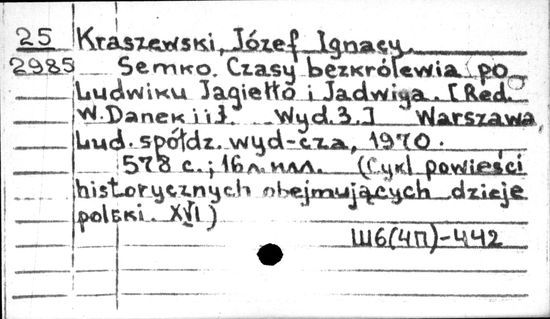 25 Kraszewski, Józef Ignacy.
2985 Semko. Czasy bezkrólewia po
Ludwiku Jagiełło i Jadwiga. [Red.
W. Danek i i]. Wyd. 3.] Warszawa,
Lud. spółdz. wyd-cza, 1970.
578 с.; 16 л. илл. (Cykl powieści
historycznych obejmujących dzieje
polski. XVI)
Ш6(4П)-442